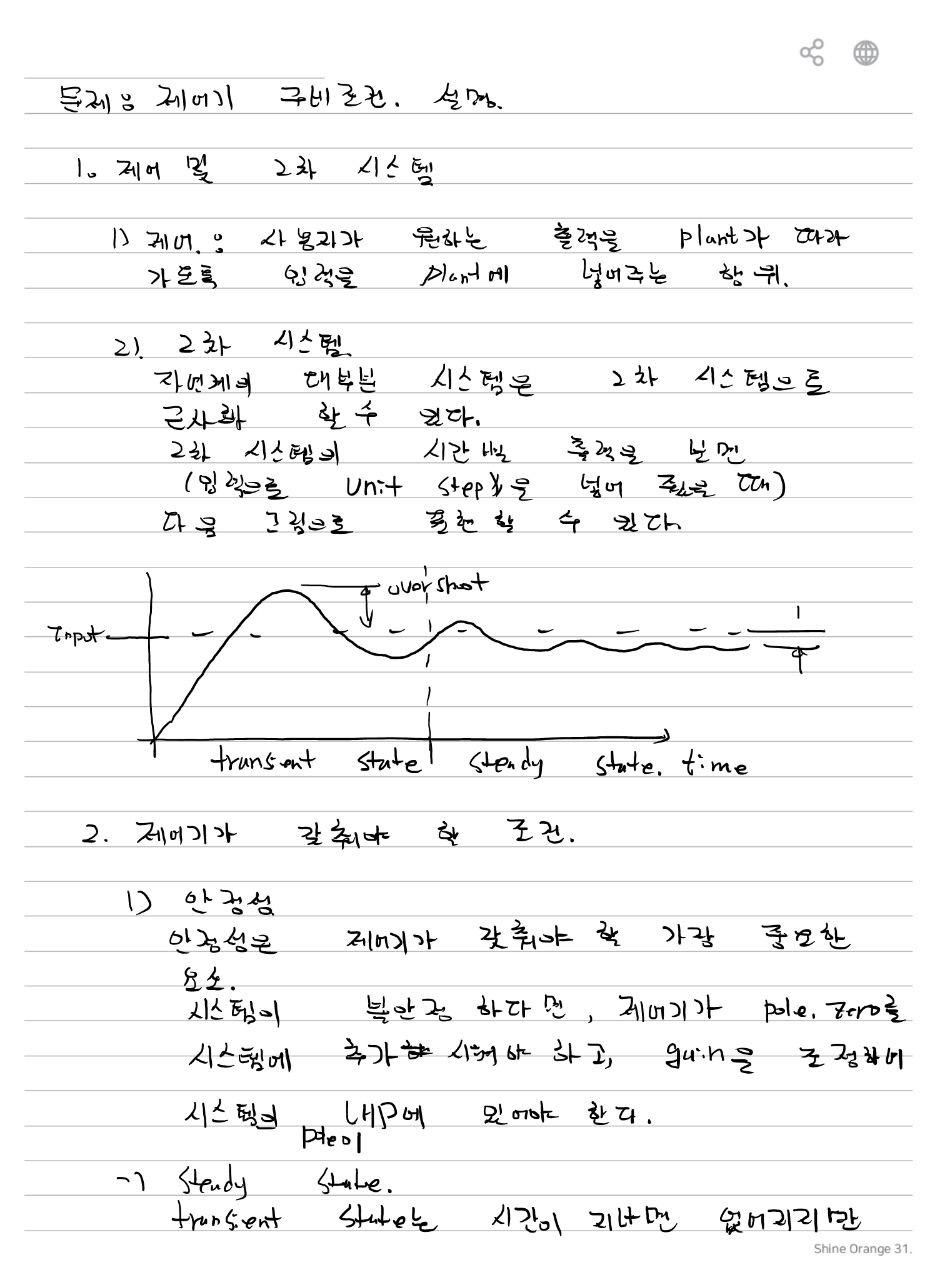 문제: 제어기 구비조건. 설명.
1. 제어 및 2차 시스템
1) 제어 : 사용자가 원하는 출력을 plant가 따라
가도록 입력을 plant에 넣어주는 행위.
2). 2차 시스템.
자연계의 대부분 시스템은 2차 시스템으로
근사화 할 수 있다.
2차 시스템의 시간별 출력을 보면
(입력으로 unit step을 넣어 줬을 때)
다음 그림으로 표현할 수 있다.
overshoot
Input
transient state steady state. time
2. 제어기가 갖춰야 할 조건.
1) 안정성
안정성은 제어기가 갖춰야 할 가장 중요한
요소.
시스템이 불안정 하다면, 제어기가 pole, zero를
시스템에 추가 시켜야 하고, gain을 조정하여
시스템의 pole이 LHP에 있어야 한다.
steady state.
transient state는 시간이 지나면 없어지지만
Shine Orange 31.